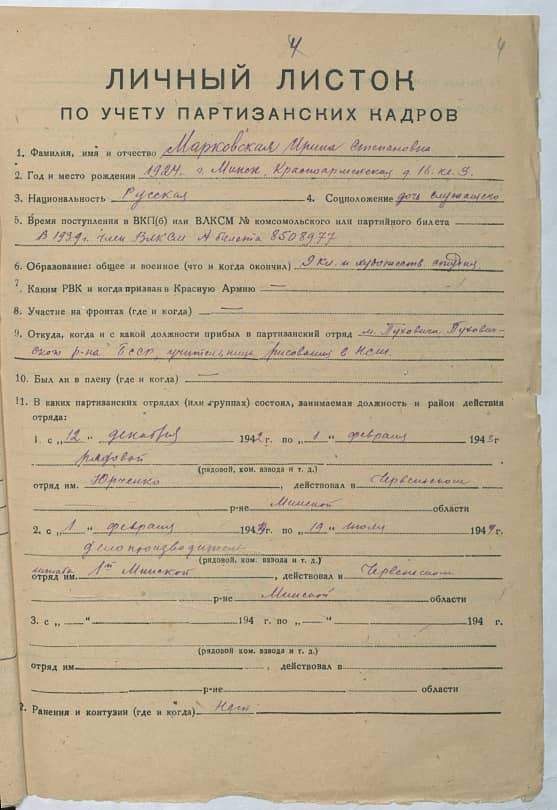 4 4
ЛИЧНЫЙ ЛИСТОК
ПО УЧЕТУ ПАРТИЗАНСКИХ КАДРОВ
1. Фамилия, имя и отчество Марковская Ирина Степановна
2. Год и место рождения 1924 г. Минск, Красноармейская д. 16. кв. 3.
3. Национальность Русская 4. Соцположение дочь служащего
5. Время поступления в ВКП(б) или ВЛКСМ № комсомольского или партийного билета
В 1939г. член ВЛКСМ № билета 8508977
6. Образование: общее и военное (что и когда окончил) 9 кл. и художеств. студия
7. Каким РВК и когда призван в Красную Армию —
8. Участие на фронтах (где и когда) —
9. Откуда, когда и с какой должности прибыл в партизанский отряд м. Пуховичи Пухович-
ского р-на БССР, учительница рисования в НСШ.
10. Был ли в плену (где и когда) —
11. В каких партизанских отрядах (или группах) состоял, занимаемая должность и район действия
отряда:
1. с „12" декабря 1942 г. по „1" февраля 1943 г
рядовой
(рядовой, ком. взвода и т. д.)
отряд им. Юрченко, действовал в Червеньском
р-не Минской области
2. с „1" февраля 1943 г. по „19" июля 1944 г.
делопроизводитель
(рядовой, ком. взвода и т. д.)
штаба
отряд им. 1й Минской, действовал в Червеньском
р-не Минской области
3. с „—" 194 г. по „—" 194 г.
(рядовой, ком. взвода и т. д.)
отряд им. , действовал в
р-не области
2. Ранения и контузии (где и когда) Нет